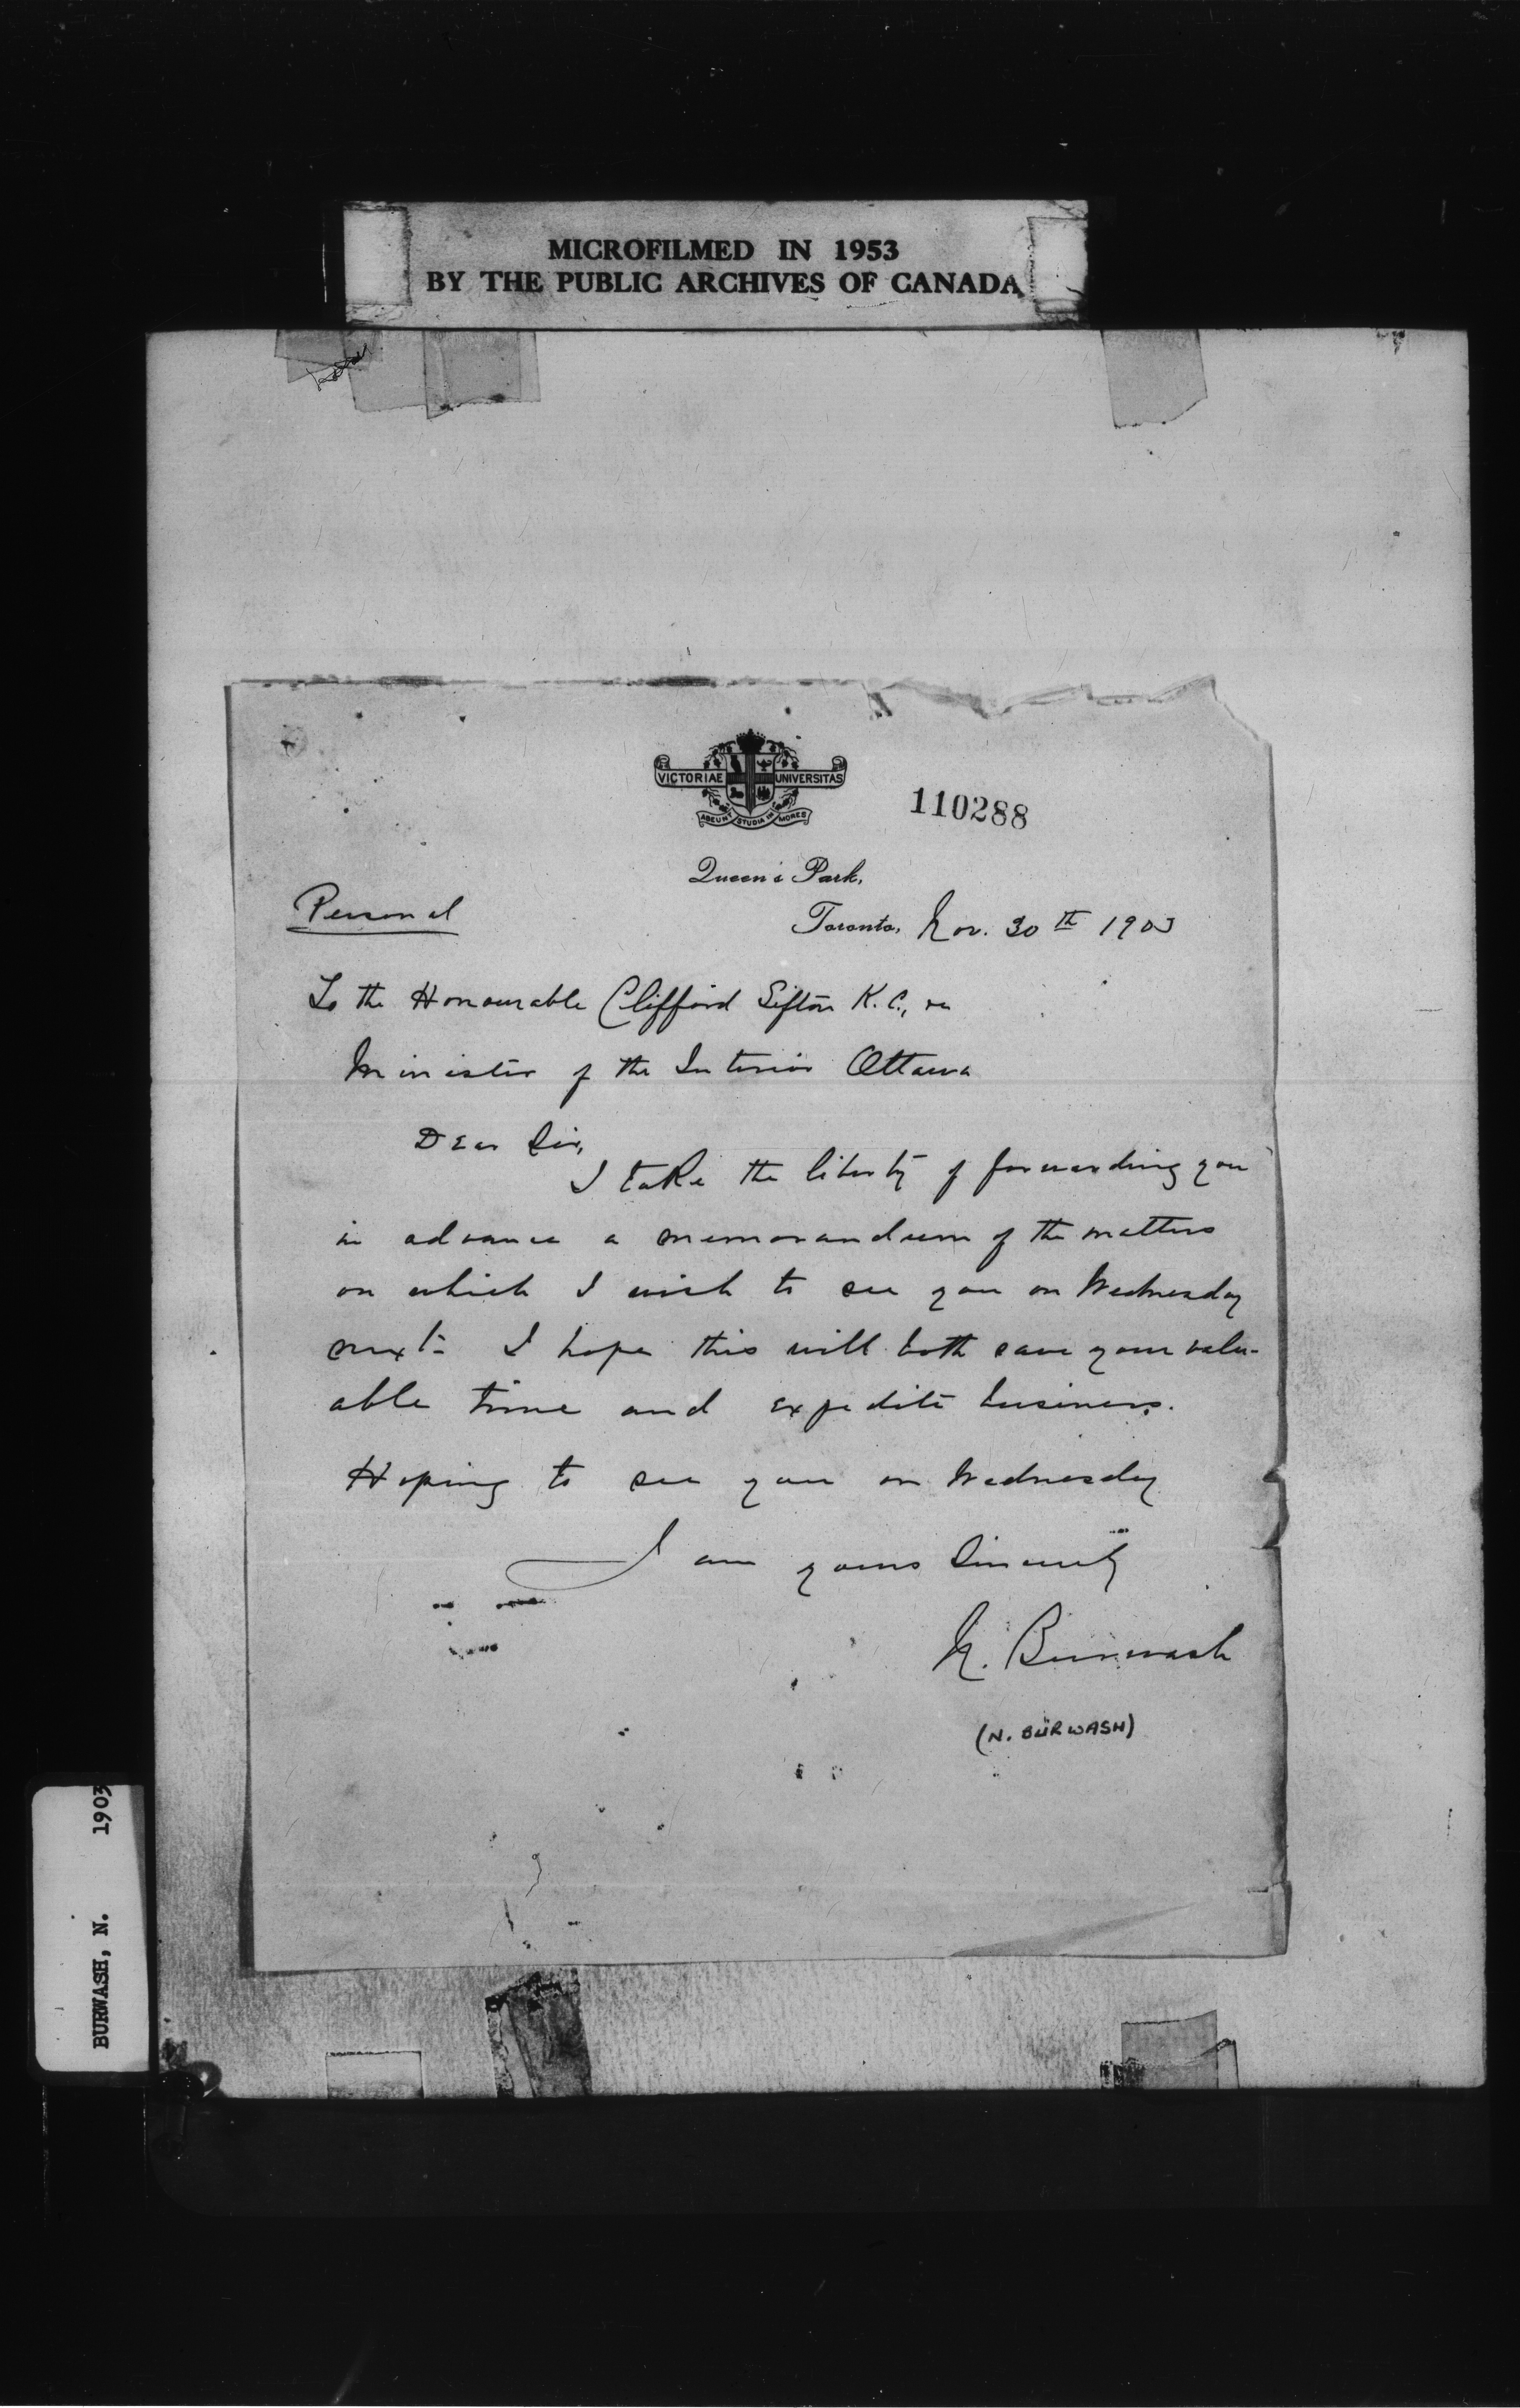 MICROFILMED IN 1953
BY THE PUBLIC ARCHIVES OF CANADA
VICTORIAE UNIVERSITAS
ABEUNT STUDIA IN MORES
110288
Queen's Park,
Personal
Toronto, Nov. 30th 1903
To the Honourable Clifford Sifton K.C.,
Minister of the Interior Ottawa
Dear Sir,
I take the liberty of forwarding you
in advance a memorandum of the matters
on which I wish to see you on Wednesday
next. I hope this will both save your valu-
able time and expedite business.
Hoping to see you on Wednesday
I am yours Sincerely
N. Burwash
(N. BURWASH)
BURWASH, N. 1903